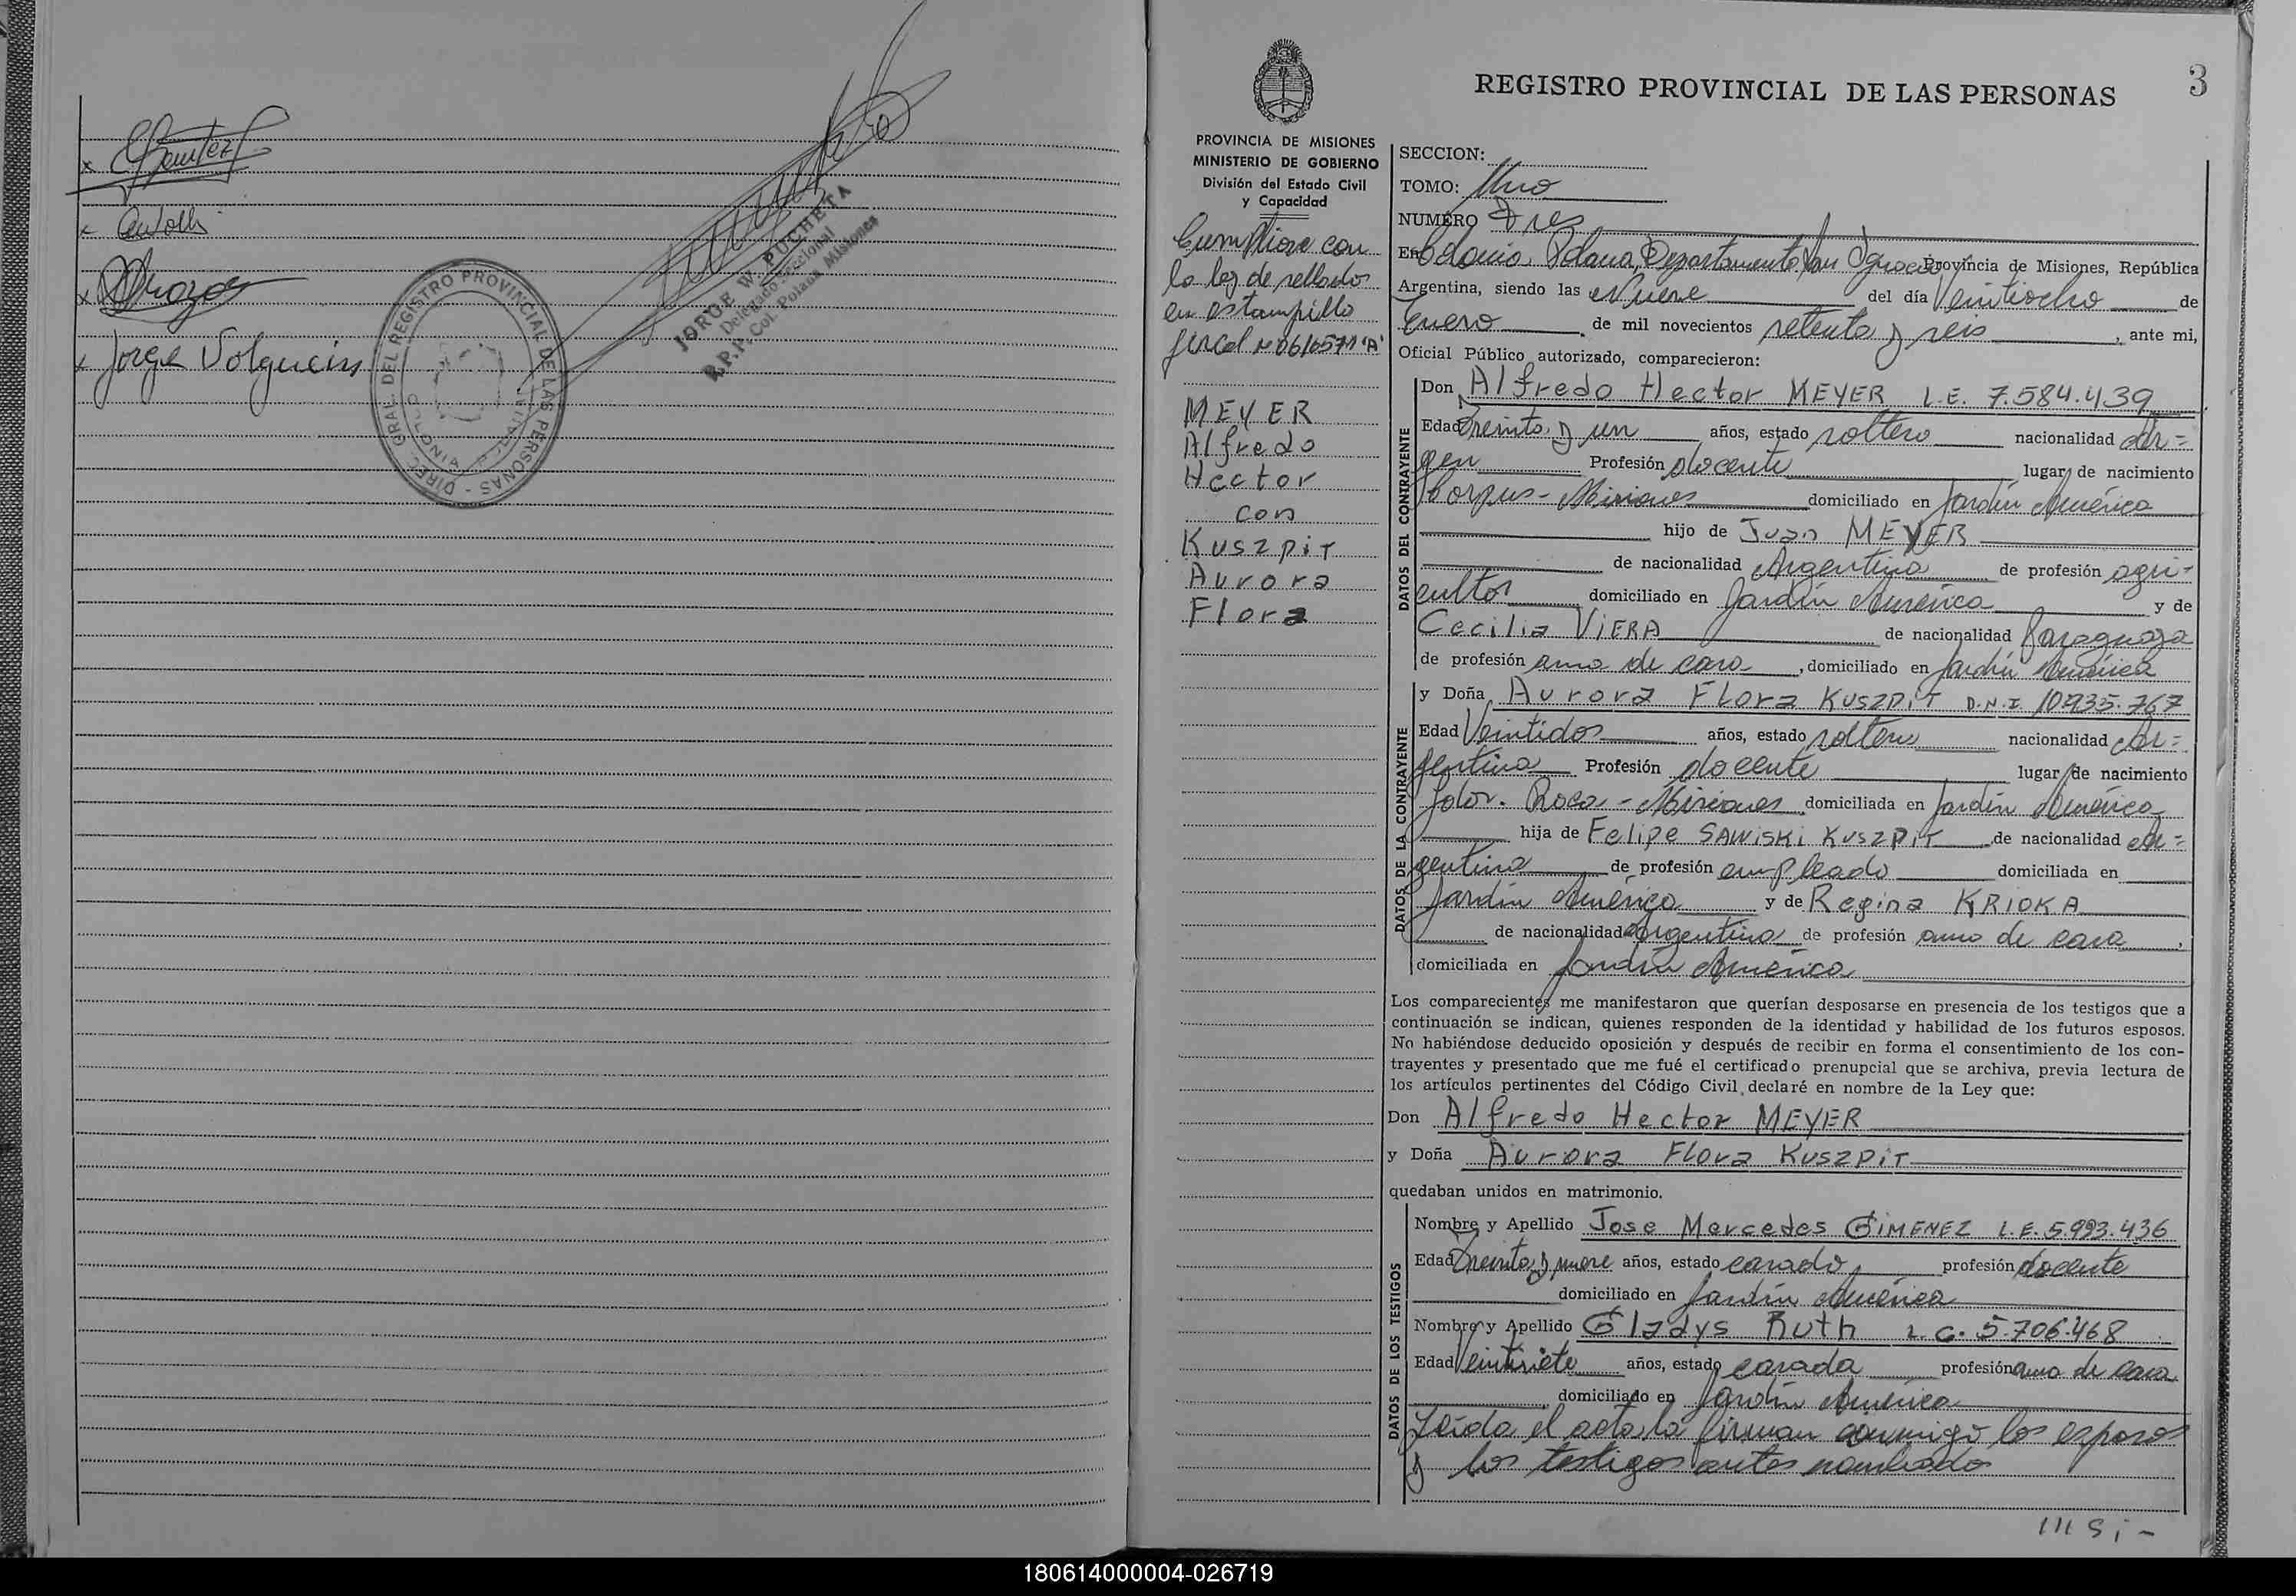 x EBenitez
x Orozco
x Jorge Volquein
DIREC. GRAL. DEL REGISTRO PROVINCIAL DE LAS PERSONAS -
COLONIA POLANA
JORGE W. PUCHETA
Delegado Seccional
R.P.P. Col. Polana Misiones
3
REGISTRO PROVINCIAL DE LAS PERSONAS
PROVINCIA DE MISIONES
MINISTERIO DE GOBIERNO
División del Estado Civil
y Capacidad
Cumpliose con
la ley de sellados
en estampilla
fiscal Nº 0610571 "A"
MEYER
Alfredo
Hector
con
Kuszpit
Aurora
Flora
SECCION:
TOMO: Uno
NUMERO Tres
En Colonia Polana, Departamento San Ignacio Provincia de Misiones, República
Argentina, siendo las Nueve del día Veintiocho de
Enero de mil novecientos setenta y seis, ante mi,
Oficial Público autorizado, comparecieron:
DATOS DEL CONTRAYENTE
Don Alfredo Hector MEYER L.E. 7.584.439
Edad Treinta y un años, estado soltero nacionalidad Ar=
gen Profesión docente lugar de nacimiento
Corpus - Misiones domiciliado en Jardín América
hijo de Juan MEYER
de nacionalidad Argentina de profesión agri-
cultor domiciliado en Jardín América y de
Cecilia VIERA de nacionalidad Paraguaya
de profesión ama de casa, domiciliado en Jardín América
DATOS DE LA CONTRAYENTE
y Doña Aurora Flora KUSZPIT D.N.I. 10.935.767
Edad Veintidos años, estado soltera nacionalidad Ar=
gentina Profesión docente lugar de nacimiento
Gdor. Roca - Misiones domiciliada en Jardín América
hija de Felipe SAWISKI KUSZPIT de nacionalidad Ar=
gentina de profesión empleado domiciliada en
Jardín América y de Regina KRIOKA
de nacionalidad Argentina de profesión ama de casa,
domiciliada en Jardín América
Los comparecientes me manifestaron que querían desposarse en presencia de los testigos que a
continuación se indican, quienes responden de la identidad y habilidad de los futuros esposos.
No habiéndose deducido oposición y después de recibir en forma el consentimiento de los con-
trayentes y presentado que me fué el certificado prenupcial que se archiva, previa lectura de
los artículos pertinentes del Código Civil, declaré en nombre de la Ley que:
Don Alfredo Hector MEYER
y Doña Aurora Flora KUSZPIT
quedaban unidos en matrimonio.
DATOS DE LOS TESTIGOS
Nombre y Apellido Jose Mercedes GIMENEZ L.E. 5.993.436
Edad Treinta y nueve años, estado casado profesión docente
domiciliado en Jardín América
Nombre y Apellido Gladys Ruth L.C. 5.706.468
Edad Veintisiete años, estado casada profesión ama de casa
domiciliado en Jardín América
Leída el acta la firman conmigo los esposos
y los testigos antes nombrados
180614000004-026719